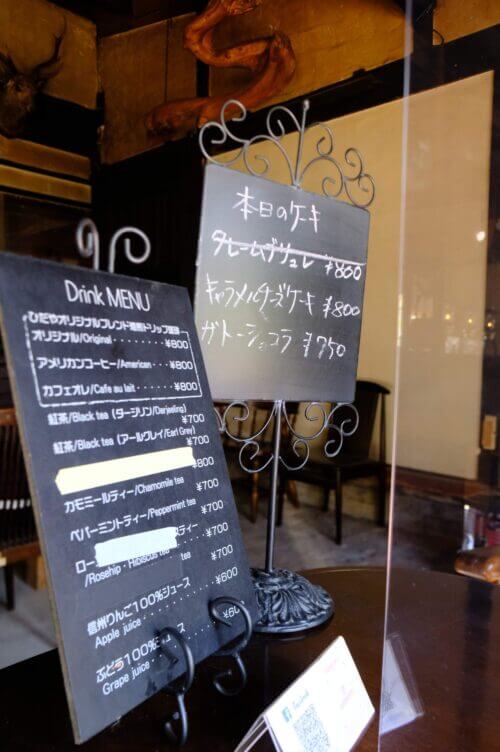 本日のケーキ
クレームブリュレ ¥800
キャラメルチーズケーキ ¥800
ガトーショコラ ¥750
Drink MENU
ひだやオリジナルブレンド
オリジナル/Original ¥800
アメリカンコーヒー/American ¥800
カフェオレ/Cafe au lait ¥800
紅茶/Black tea (ダージリン/Darjeeling) ¥700
紅茶/Black tea (アールグレイ/Earl Grey) ¥700
¥800
カモミールティー/Chamomile tea ¥700
ペパーミントティー/Peppermint tea ¥700
ロー スティー
/Rosehip・Hibiscus tea ¥700
¥700
信州りんご100%ジュース
Apple juice ¥600
ぶどう100%ジュース
Grape juice ¥60